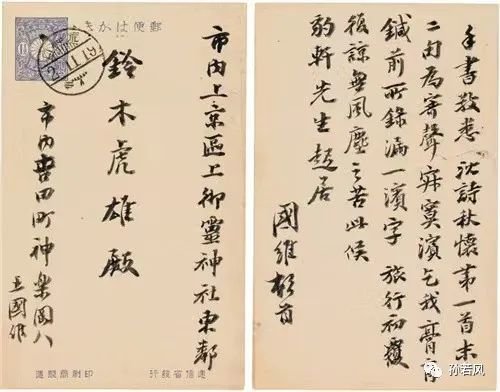 郵便はかき
市内上京區上御靈神社東鄰
鈴木虎雄殿
市内吉田町神樂岡八
王國維
遞信省發行
印刷局製造
手書敬悉 沈詩秋懷第一首末
二句為寄聲寂寞濱乞我膏肓
鍼前所錄漏一濱字 旅行初
後諒無風塵之苦此候
豹軒先生起居
國維頓首
孙若风